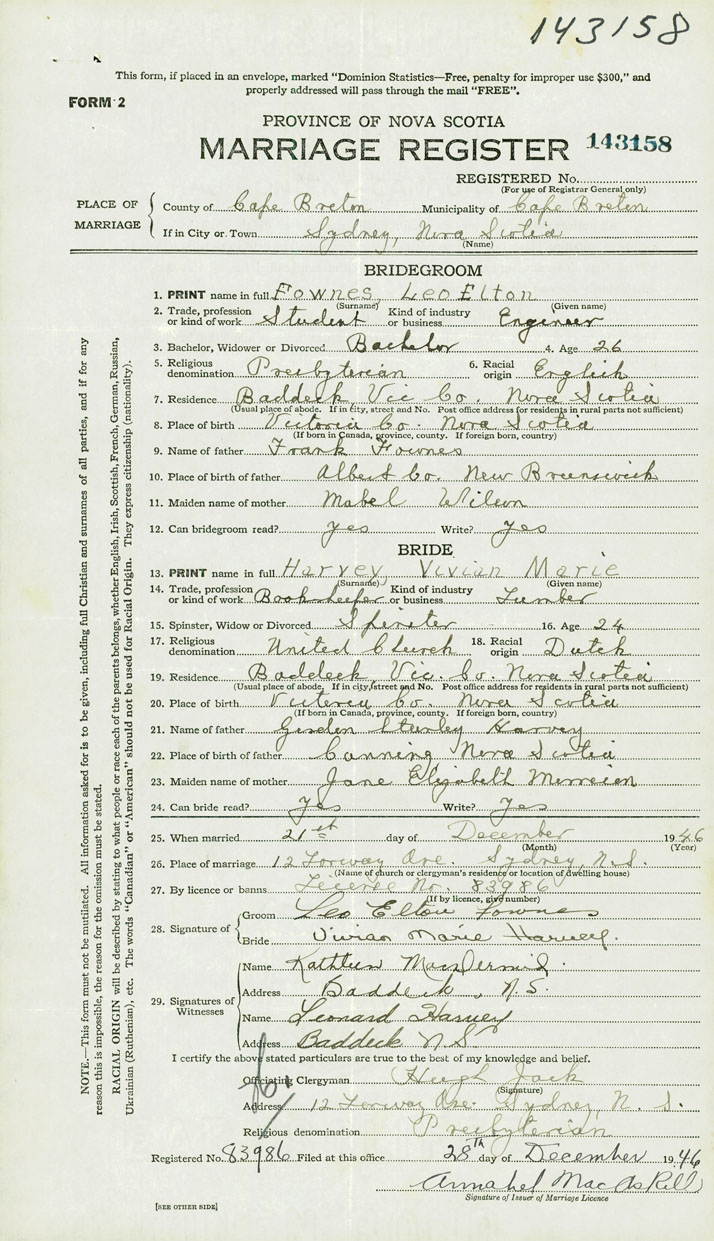 143158
This form, if placed in an envelope, marked "Dominion Statistics—Free, penalty for improper use $300," and
properly addressed will pass through the mail "FREE".
FORM 2
PROVINCE OF NOVA SCOTIA
MARRIAGE REGISTER 143158
REGISTERED No.
(For use of Registrar General only)
PLACE OF MARRIAGE
County of Cape Breton Municipality of Cape Breton
If in City or Town Sydney, Nova Scotia
(Name)
BRIDEGROOM
1. PRINT name in full Fownes, Leo Elton
(Surname) (Given name)
2. Trade, profession or kind of work Student Kind of industry or business Engineer
3. Bachelor, Widower or Divorced Bachelor 4. Age 26
5. Religious denomination Presbyterian 6. Racial origin English
7. Residence Baddeck, Vic Co. Nova Scotia
(Usual place of abode. If in city, street and No. Post office address for residents in rural parts not sufficient)
8. Place of birth Victoria Co. Nova Scotia
(If born in Canada, province, county. If foreign born, country)
9. Name of father Frank Fownes
10. Place of birth of father Albert Co. New Brunswick
11. Maiden name of mother Mabel Wilson
12. Can bridegroom read? yes Write? yes
BRIDE
13. PRINT name in full Harvey Vivian Marie
(Surname) (Given name)
14. Trade, profession or kind of work Bookkeeper Kind of industry or business Lumber
15. Spinster, Widow or Divorced Spinster 16. Age 24
17. Religious denomination United Church 18. Racial origin Dutch
19. Residence Baddeck, Vic. Co. Nova Scotia
(Usual place of abode. If in city, street and No. Post office address for residents in rural parts not sufficient)
20. Place of birth Victoria Co. Nova Scotia
(If born in Canada, province, county. If foreign born, country)
21. Name of father Harvey
22. Place of birth of father Canning Nova Scotia
23. Maiden name of mother Jane Elizabeth
24. Can bride read? Yes Write? Yes
25. When married 21st day of December 1946
(Month) (Year)
26. Place of marriage 12 Ave. Sydney, N.S.
(Name of church or clergyman's residence or location of dwelling house)
27. By licence or banns License No. 83986
(If by licence, give number)
28. Signature of
Groom Leo Elton Fownes
Bride Vivian Marie Harvey.
29. Signatures of Witnesses
Name Kathleen MacDermid.
Address Baddeck, N.S.
Name Leonard Harvey
Address Baddeck N.S.
I certify the above stated particulars are true to the best of my knowledge and belief.
Officiating Clergyman Hugh Jack
(Signature)
Address 12 Ave. Sydney, N. S.
Religious denomination Presbyterian
Registered No. 83986 Filed at this office 28th day of December 1946
Annabel MacAskill
Signature of Issuer of Marriage Licence
[SEE OTHER SIDE]
NOTE.—This form must not be mutilated. All information asked for is to be given, including full Christian and surnames of all parties, and if for any
reason this is impossible, the reason for the omission must be stated.
RACIAL ORIGIN will be described by stating to what people or race each of the parents belongs, whether English, Irish, Scottish, French, German, Russian,
Ukrainian (Ruthenian), etc. The words "Canadian" or "American" should not be used for Racial Origin. They express citizenship (nationality).